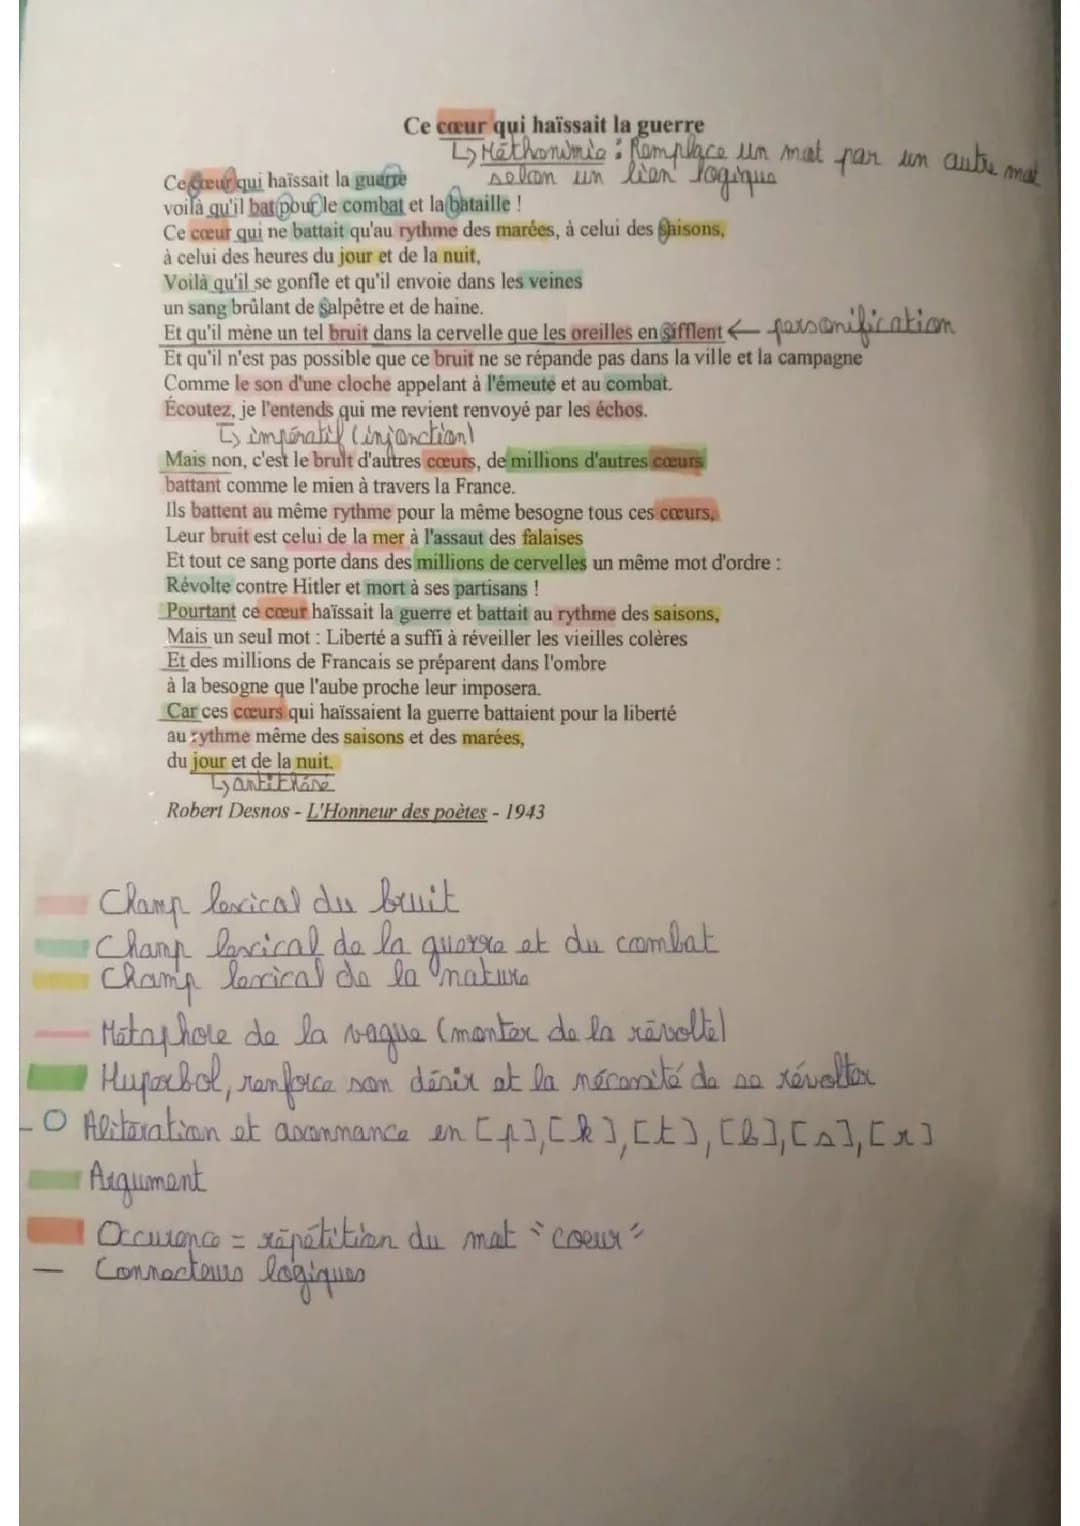 Ce cœur qui haïssait la guerre
↳ Méthonimie : Remplace un mot par un autre mot
selon un lien logique
Ce cœur qui haïssait la guerre
voilà qu'il bat pour le combat et la bataille !
Ce cœur qui ne battait qu'au rythme des marées, à celui des saisons,
à celui des heures du jour et de la nuit,
Voilà qu'il se gonfle et qu'il envoie dans les veines
un sang brûlant de salpêtre et de haine.
Et qu'il mène un tel bruit dans la cervelle que les oreilles en sifflent ← personification
Et qu'il n'est pas possible que ce bruit ne se répande pas dans la ville et la campagne
Comme le son d'une cloche appelant à l'émeute et au combat.
Écoutez, je l'entends qui me revient renvoyé par les échos.
↳ impératif (injonction)
Mais non, c'est le bruit d'autres cœurs, de millions d'autres cœurs
battant comme le mien à travers la France.
Ils battent au même rythme pour la même besogne tous ces cœurs,
Leur bruit est celui de la mer à l'assaut des falaises
Et tout ce sang porte dans des millions de cervelles un même mot d'ordre :
Révolte contre Hitler et mort à ses partisans !
Pourtant ce cœur haïssait la guerre et battait au rythme des saisons,
Mais un seul mot : Liberté a suffi à réveiller les vieilles colères
Et des millions de Francais se préparent dans l'ombre
à la besogne que l'aube proche leur imposera.
Car ces cœurs qui haïssaient la guerre battaient pour la liberté
au rythme même des saisons et des marées,
du jour et de la nuit.
↳ antithèse
Robert Desnos - L'Honneur des poètes - 1943
Champ lexical du bruit
Champ lexical de la guerre et du combat
Champ lexical de la nature
Métaphore de la vague (monter de la révolte)
Huperbol, renforce son désir et la nécessité de se révolter
O Aliteration et asonnance en [p], [k], [t], [b], [s], [r]
Argument
Occurence = répétition du mot "coeur"
Connecteurs logiques